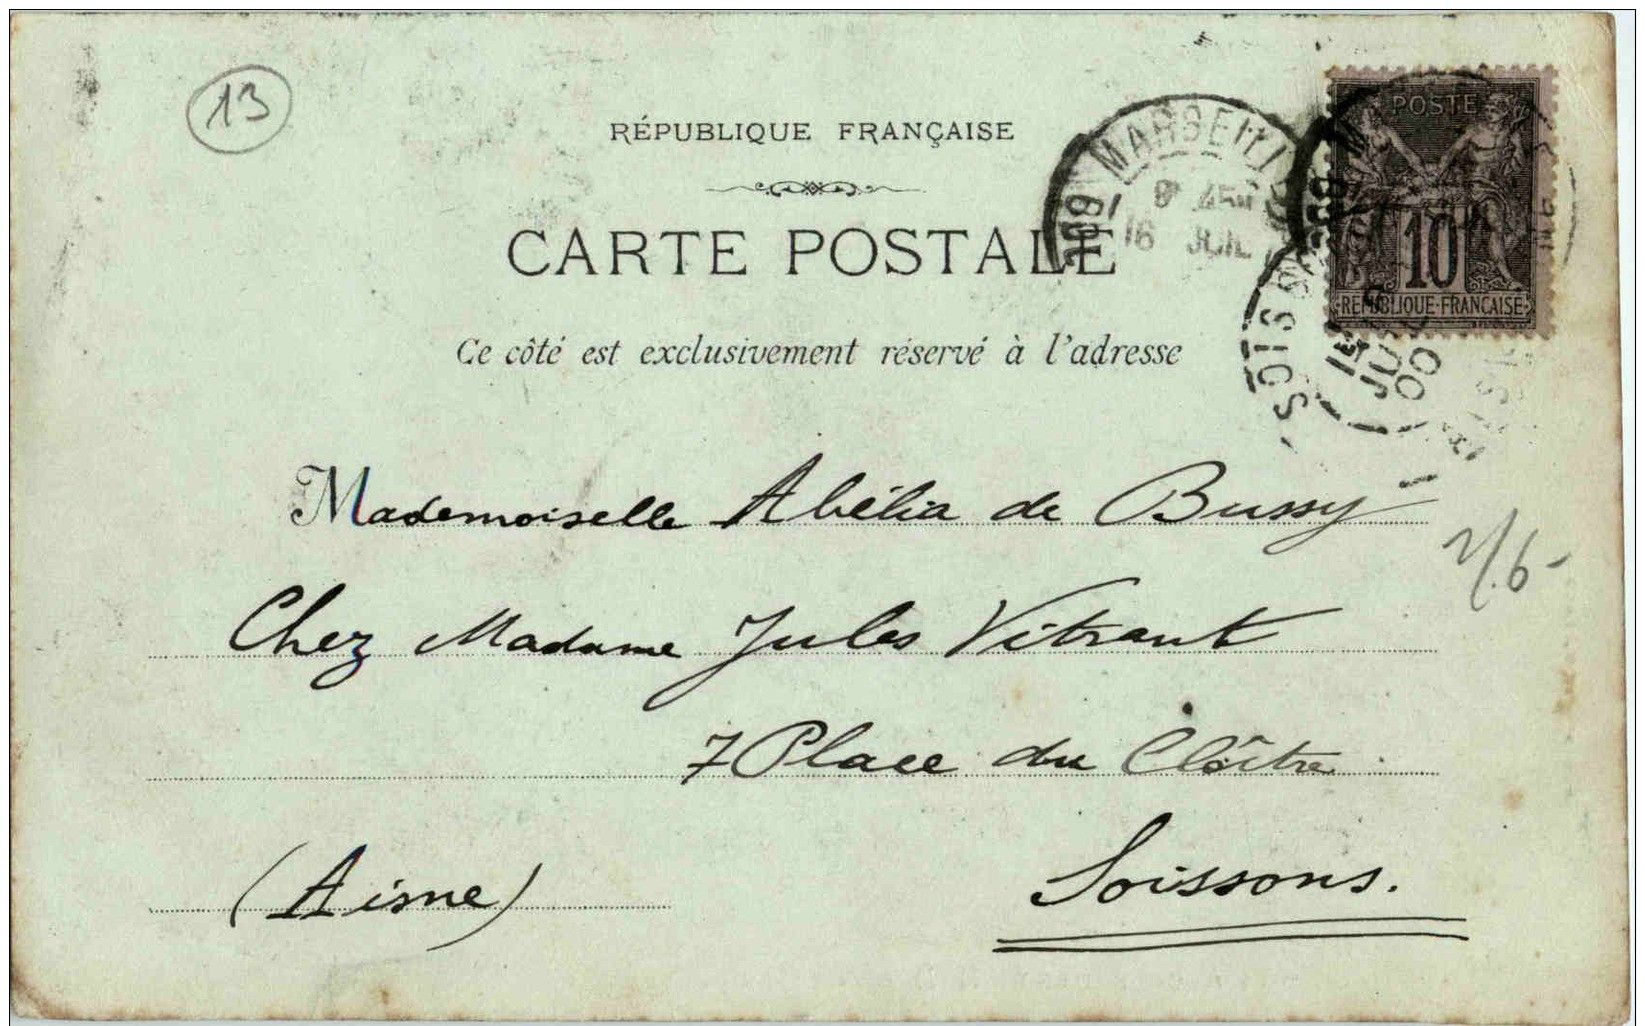 13
RÉPUBLIQUE FRANÇAISE
CARTE POSTALE
Ce côté est exclusivement réservé à l'adresse
POSTE
10
RÉPUBLIQUE FRANÇAISE
16 JUIL
JUIL
00
Mademoiselle Abélia de Bussy
Chez Madame Jules Vitrant
7 Place du Cloître
Soissons.
(Aisne)